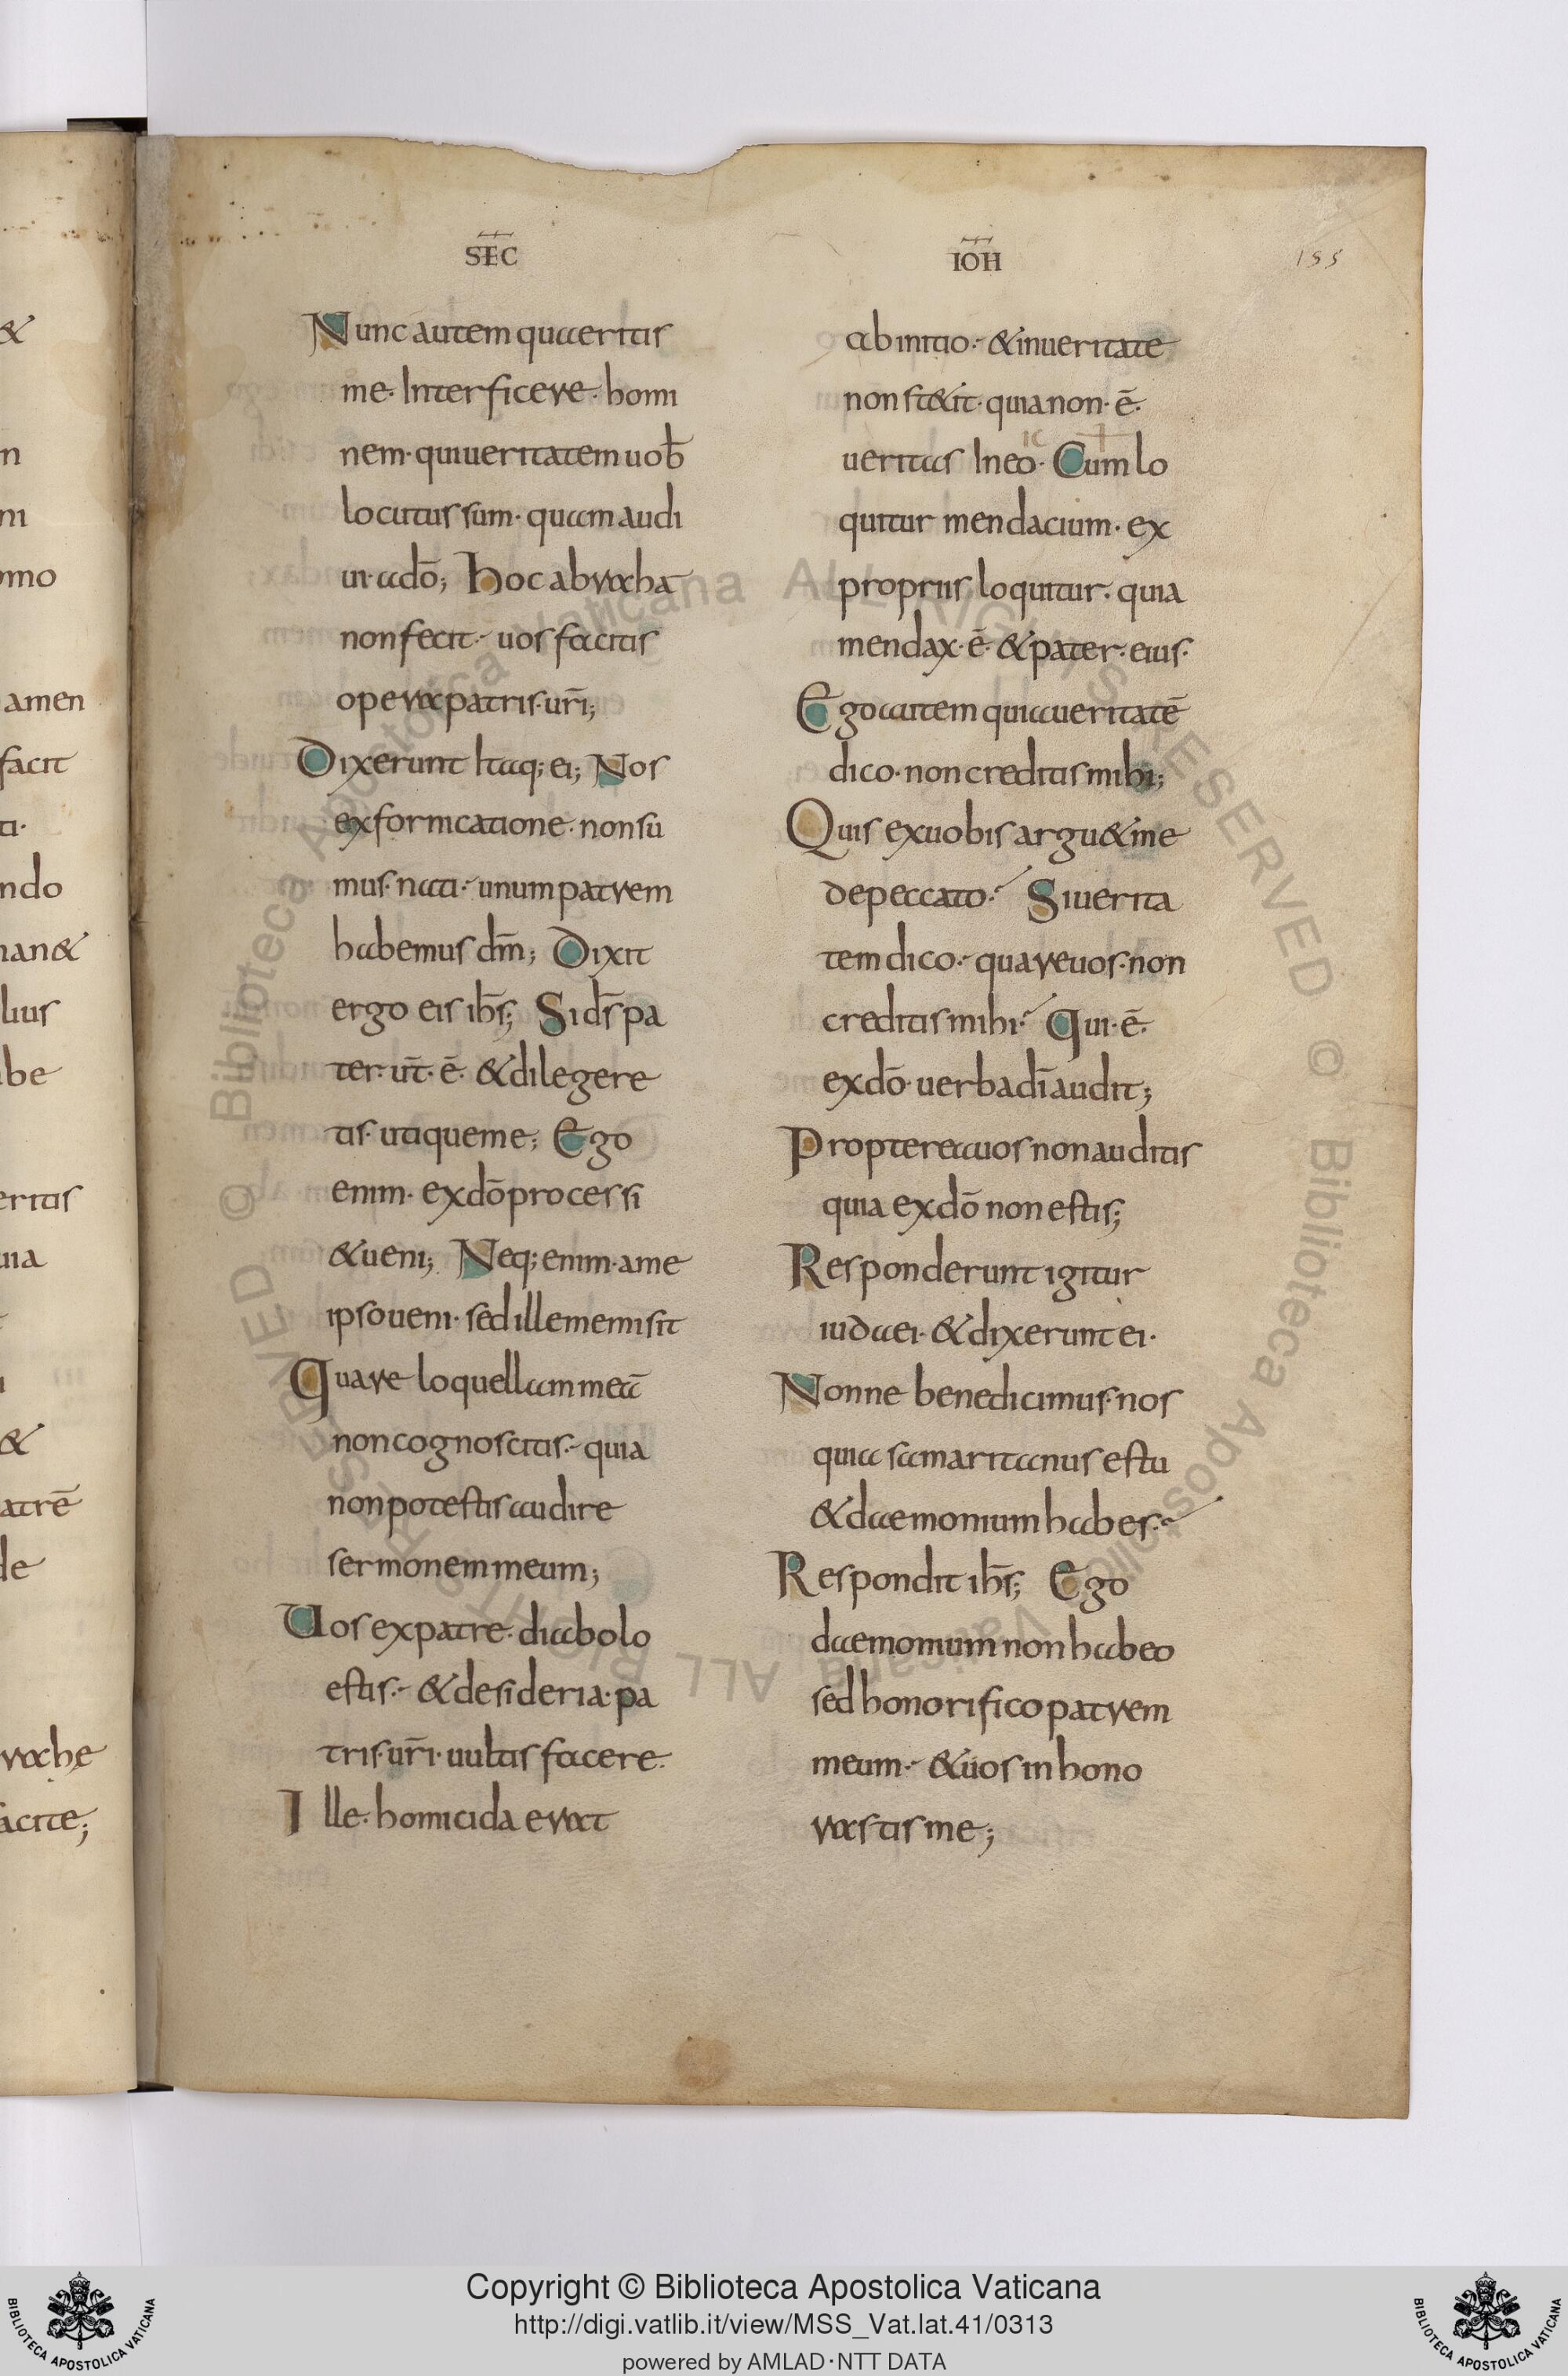 SEC̄
Nunc autem quaeritis
me· Interficere· homi
nem· qui ueritatem uob̄
locutus sum· quam audi
ui· a dō; hoc abrahā
non fecit· uos facitis
opera patris· ur̄i;
Dixerunt Itaq; ei; Nos
ex fornicatione· non su
mus· nati· unum patrem
habemus dm̄; Dixit
ergo eis ih̄s; Si ds̄ pa
ter· ur̄t· ē· & dilegere
tis· utique me; Ego
enim· ex dō processi
& ueni; Neq; enim· a me
ipso ueni· sed ille me misit
Quare loquellam meā
non cognoscitis· quia
non potestis audire
sermonem meum;
Uos ex patre· diabolo
estis· & desideria· pa
tris· ur̄i· uultis facere·
Ille· homicida erat
IOH̄
155
ab initio· & in ueritate
non st&it· quia non· ē·
ueritas In eo· Cum lo
quitur mendacium· ex
propriis loquitur· quia
mendax· ē· & pater· eius·
Ego autem quia ueritatē
dico· non creditis mihi;
Quis ex uobis argu& me
de peccato· Si uerita
tem dico· quare uos· non
creditis mihi· Qui· ē·
ex dō· uerba dī audit;
Propterea uos non auditis
quia ex dō non estis;
Responderunt igitur
iudaei· & dixerunt ei·
Nonne bene dicimus· nos
quia samaritanus es tu
& daemonium habes·
Respondit ih̄s; Ego
daemonium non habeo
sed honorifico patrem
meum· & uos inhono
rastis me;
&
amen
facit
lius
atrē
Copyright © Biblioteca Apostolica Vaticana
http://digi.vatlib.it/view/MSS_Vat.lat.41/0313
powered by AMLAD·NTT DATA
BIBLIOTECA APOSTOLICA VATICANA
BIBLIOTECA APOSTOLICA VATICANA